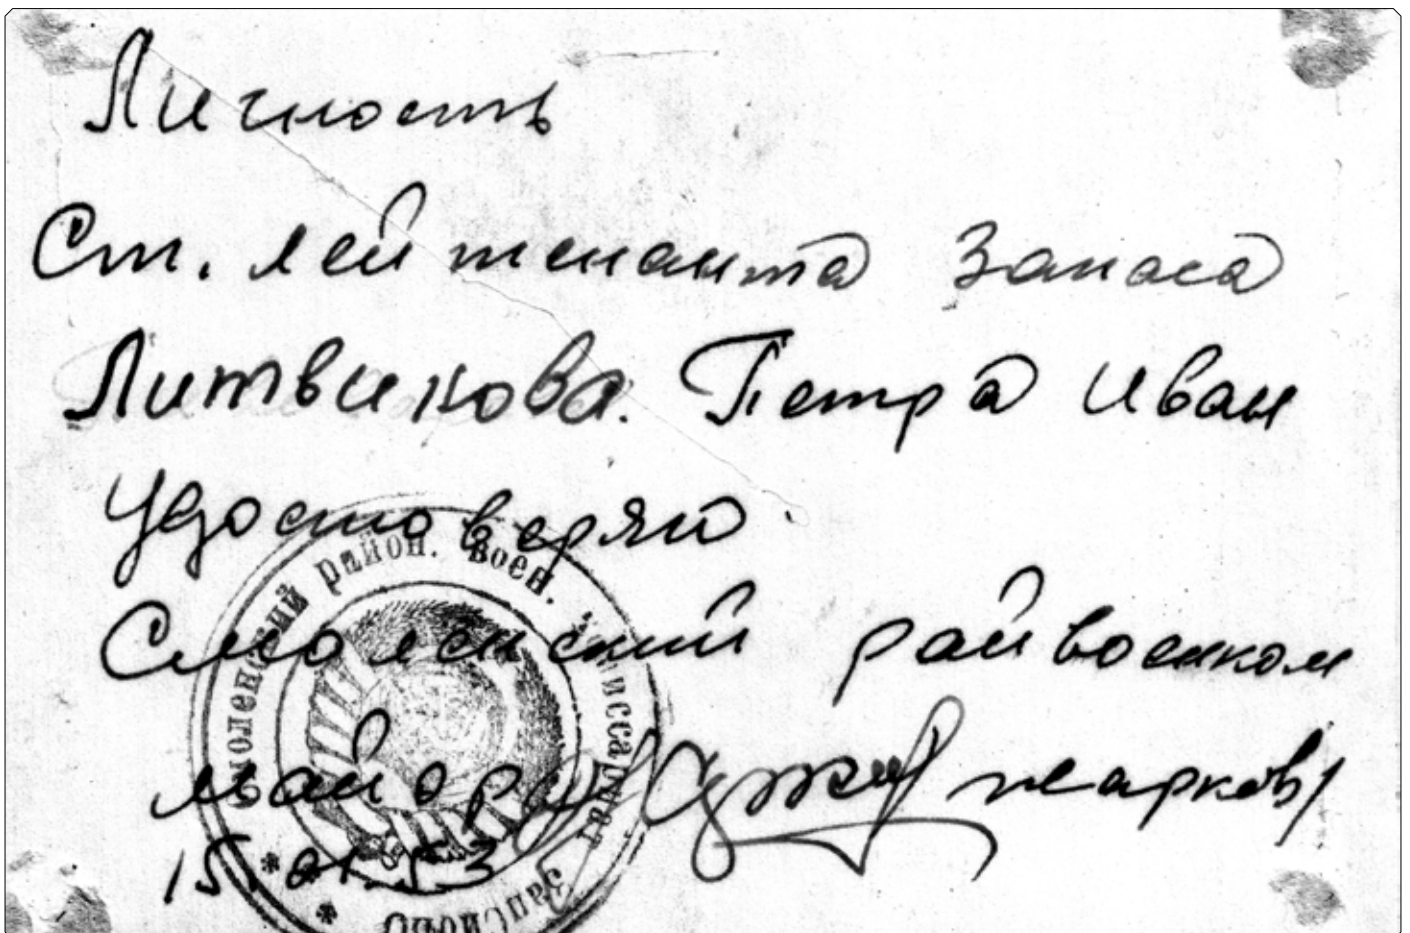 Личность
Ст. лейтенанта запаса
Литвикова. Петра Иван
удостоверяю.
Смоленский райвоенком
майор /Жарков/
15.01.53
Смоленский район. воен. комиссариат